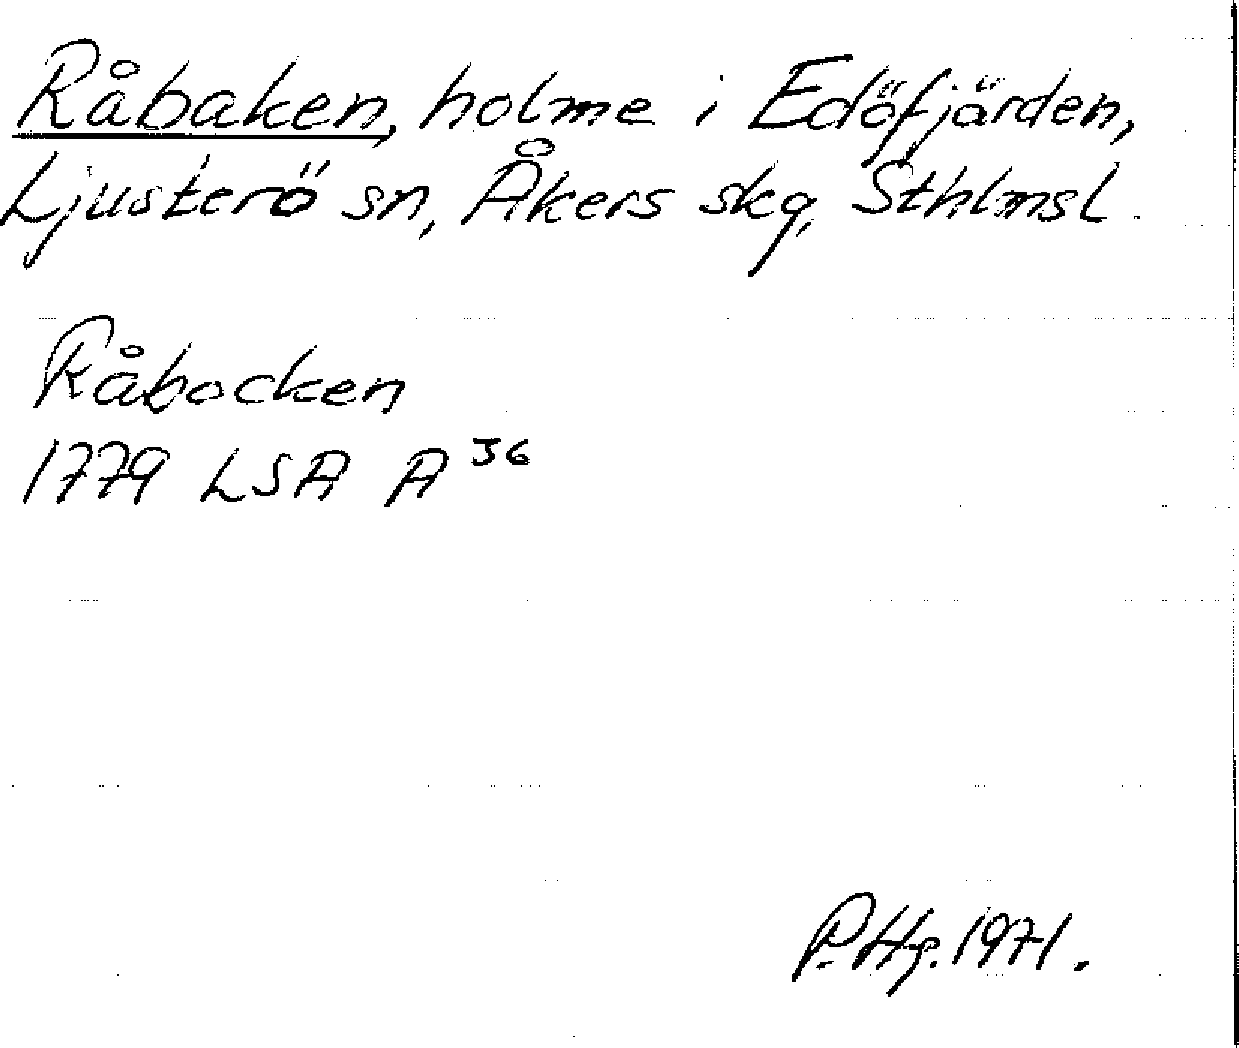 Råbaken, holme i Edöfjärden,
Ljusterö sn, Åkers skg, Sthlmsl.
Råbocken
1779 LSA A 36
P. Hg. 1971.